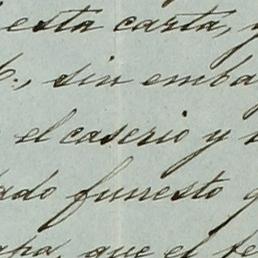 esta carta, y
sin emba
el caserio y
ado funesto
que el fe